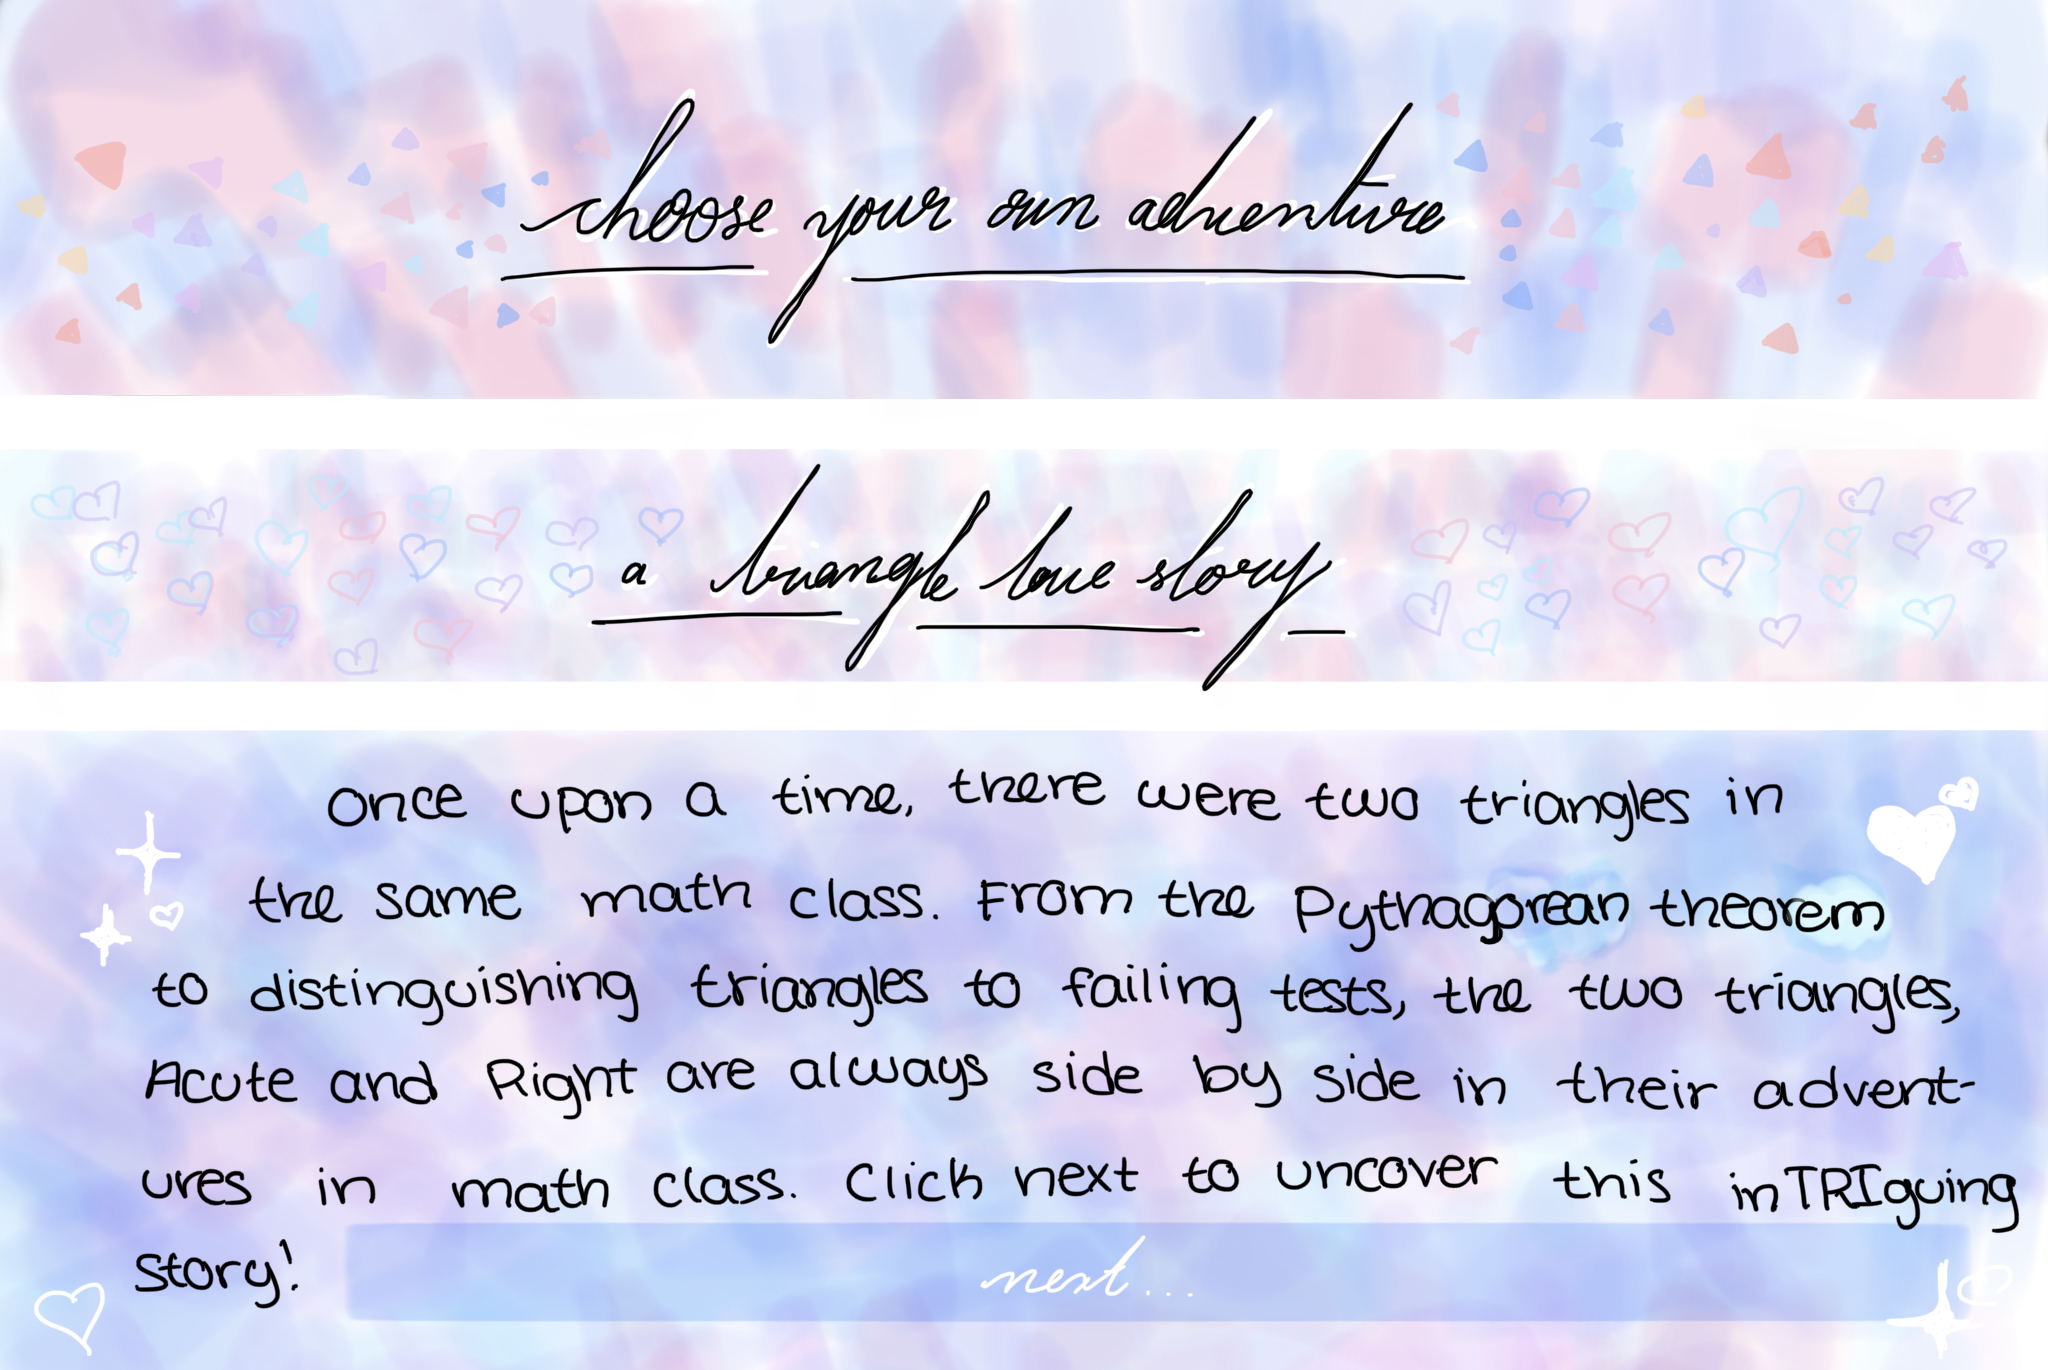 choose your own adventure
a triangle love story
Once upon a time, there were two triangles in
the same math class. From the Pythagorean theorem
to distinguishing triangles to failing tests, the two triangles,
Acute and Right are always side by side in their advent-
ures in math class. Click next to uncover this inTRIguing
story!
next...